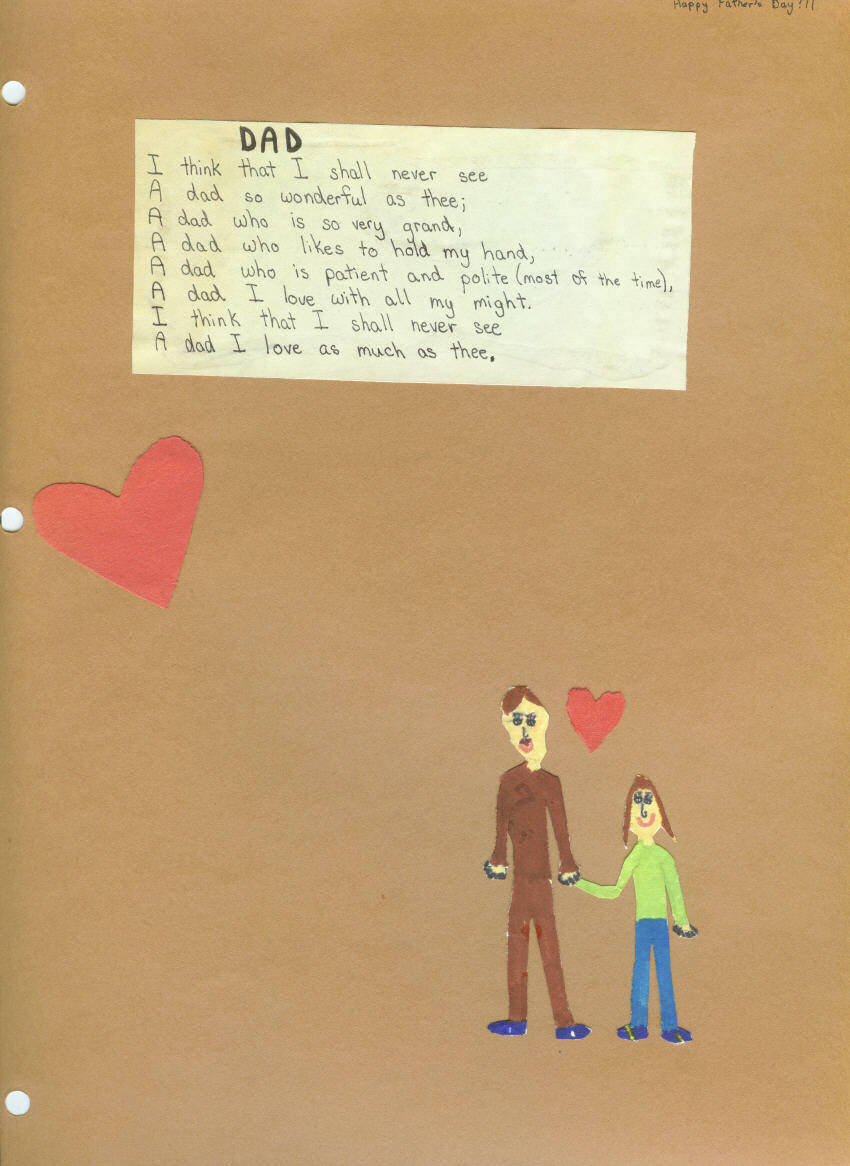 Happy Father's Day!!!
DAD
I think that I shall never see
A dad so wonderful as thee;
A dad who is so very grand,
A dad who likes to hold my hand,
A dad who is patient and polite (most of the time),
A dad I love with all my might.
I think that I shall never see
A dad I love as much as thee.